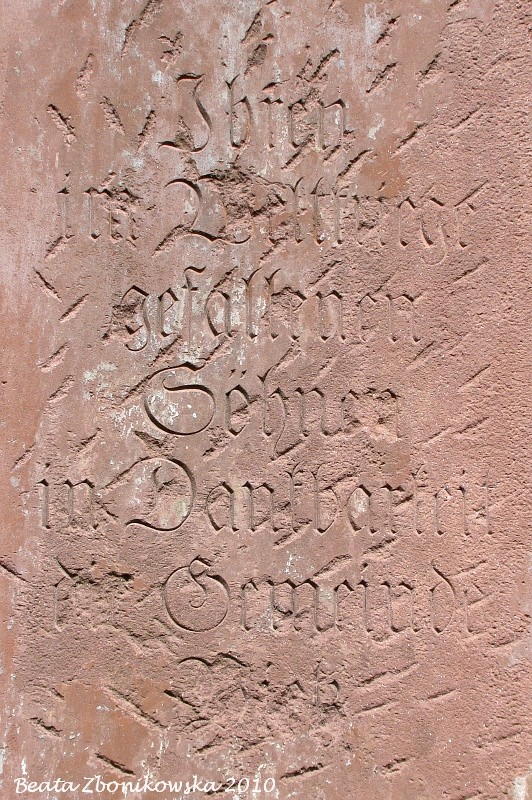 Ihren
im Weltkriege
gefallenen
Söhnen
in Dankbarkeit
die Gemeinde
Beata Zbonikowska 2010